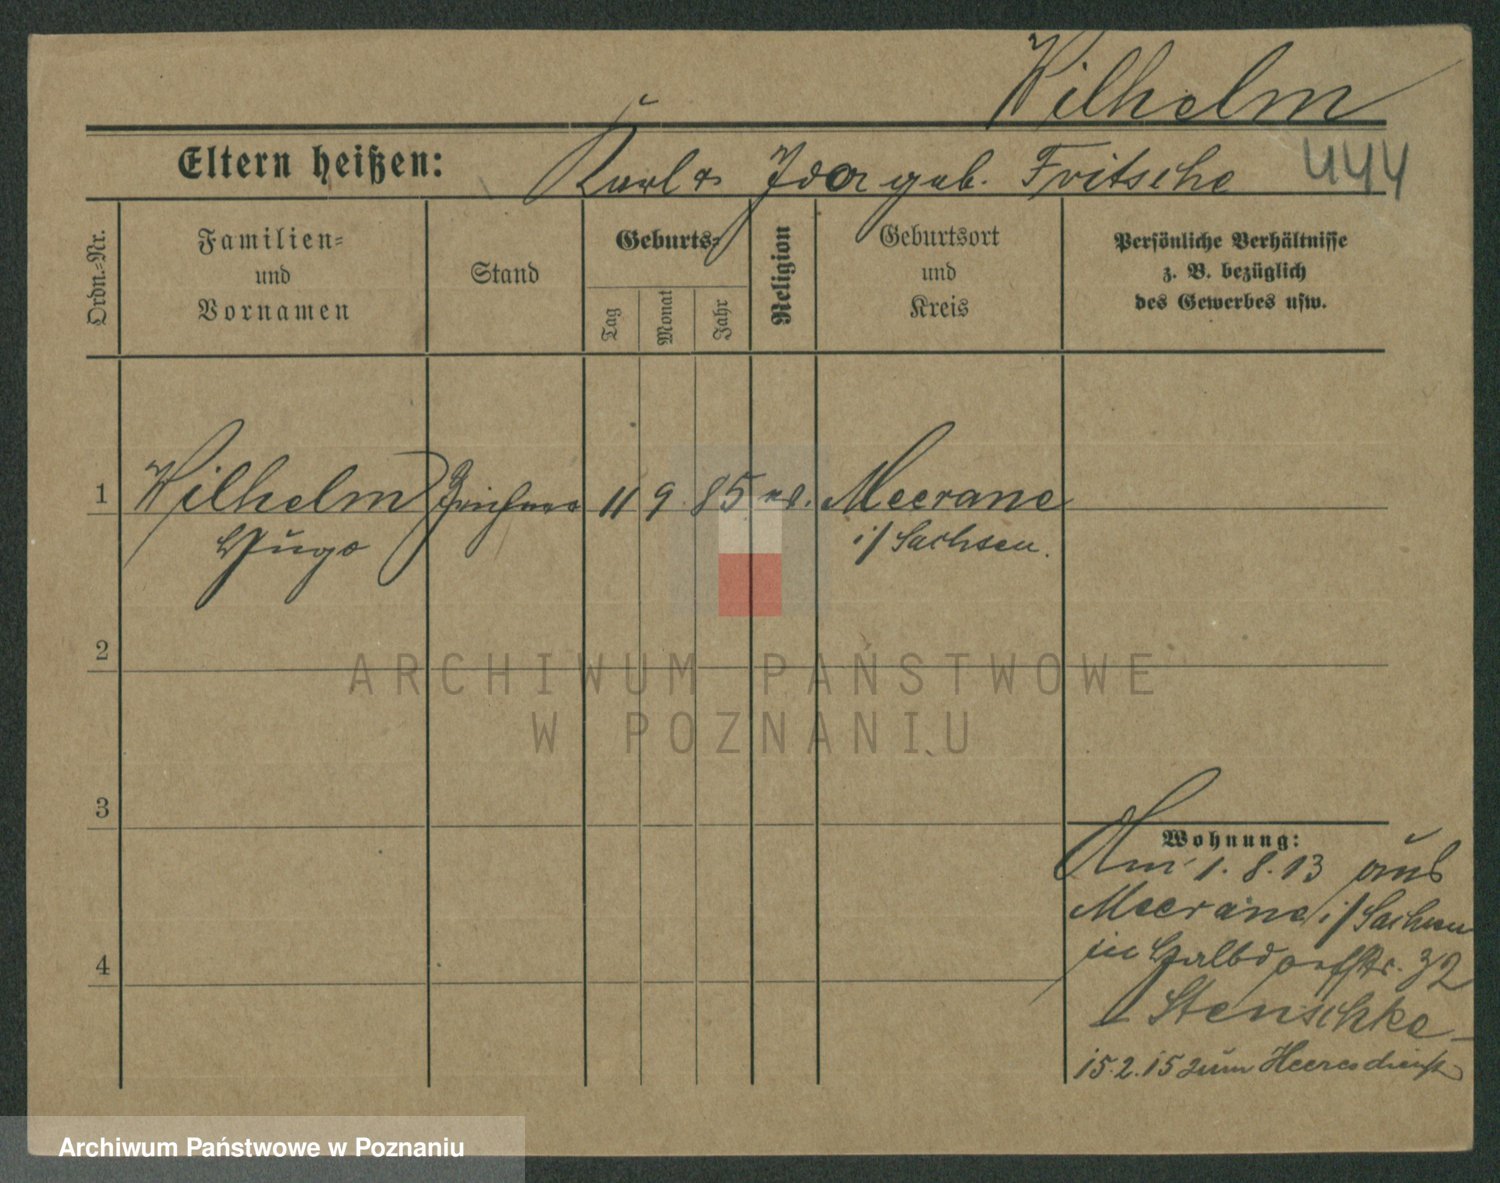 Wilhelm
Eltern heißen: Karl & Ida geb. Fritsche 444
Ordn.-Nr.
Familien- und Vornamen
Stand
Geburts-
Tag
Monat
Jahr
Religion
Geburtsort und Kreis
Persönliche Verhältnisse z. B. bezüglich des Gewerbes usw.
1 Wilhelm Zeichner 11 9. 85 Meerane
Hugo i/Sachsen.
2
ARCHIWUM PAŃSTWOWE
W POZNANIU
3
Wohnung:
Am 1. 8. 13 aus
Meerane i/Sachsen
4
in Halbdorfstr. 32
Stenschke
15.2.15 zum Heeresdienst
Archiwum Państwowe w Poznaniu